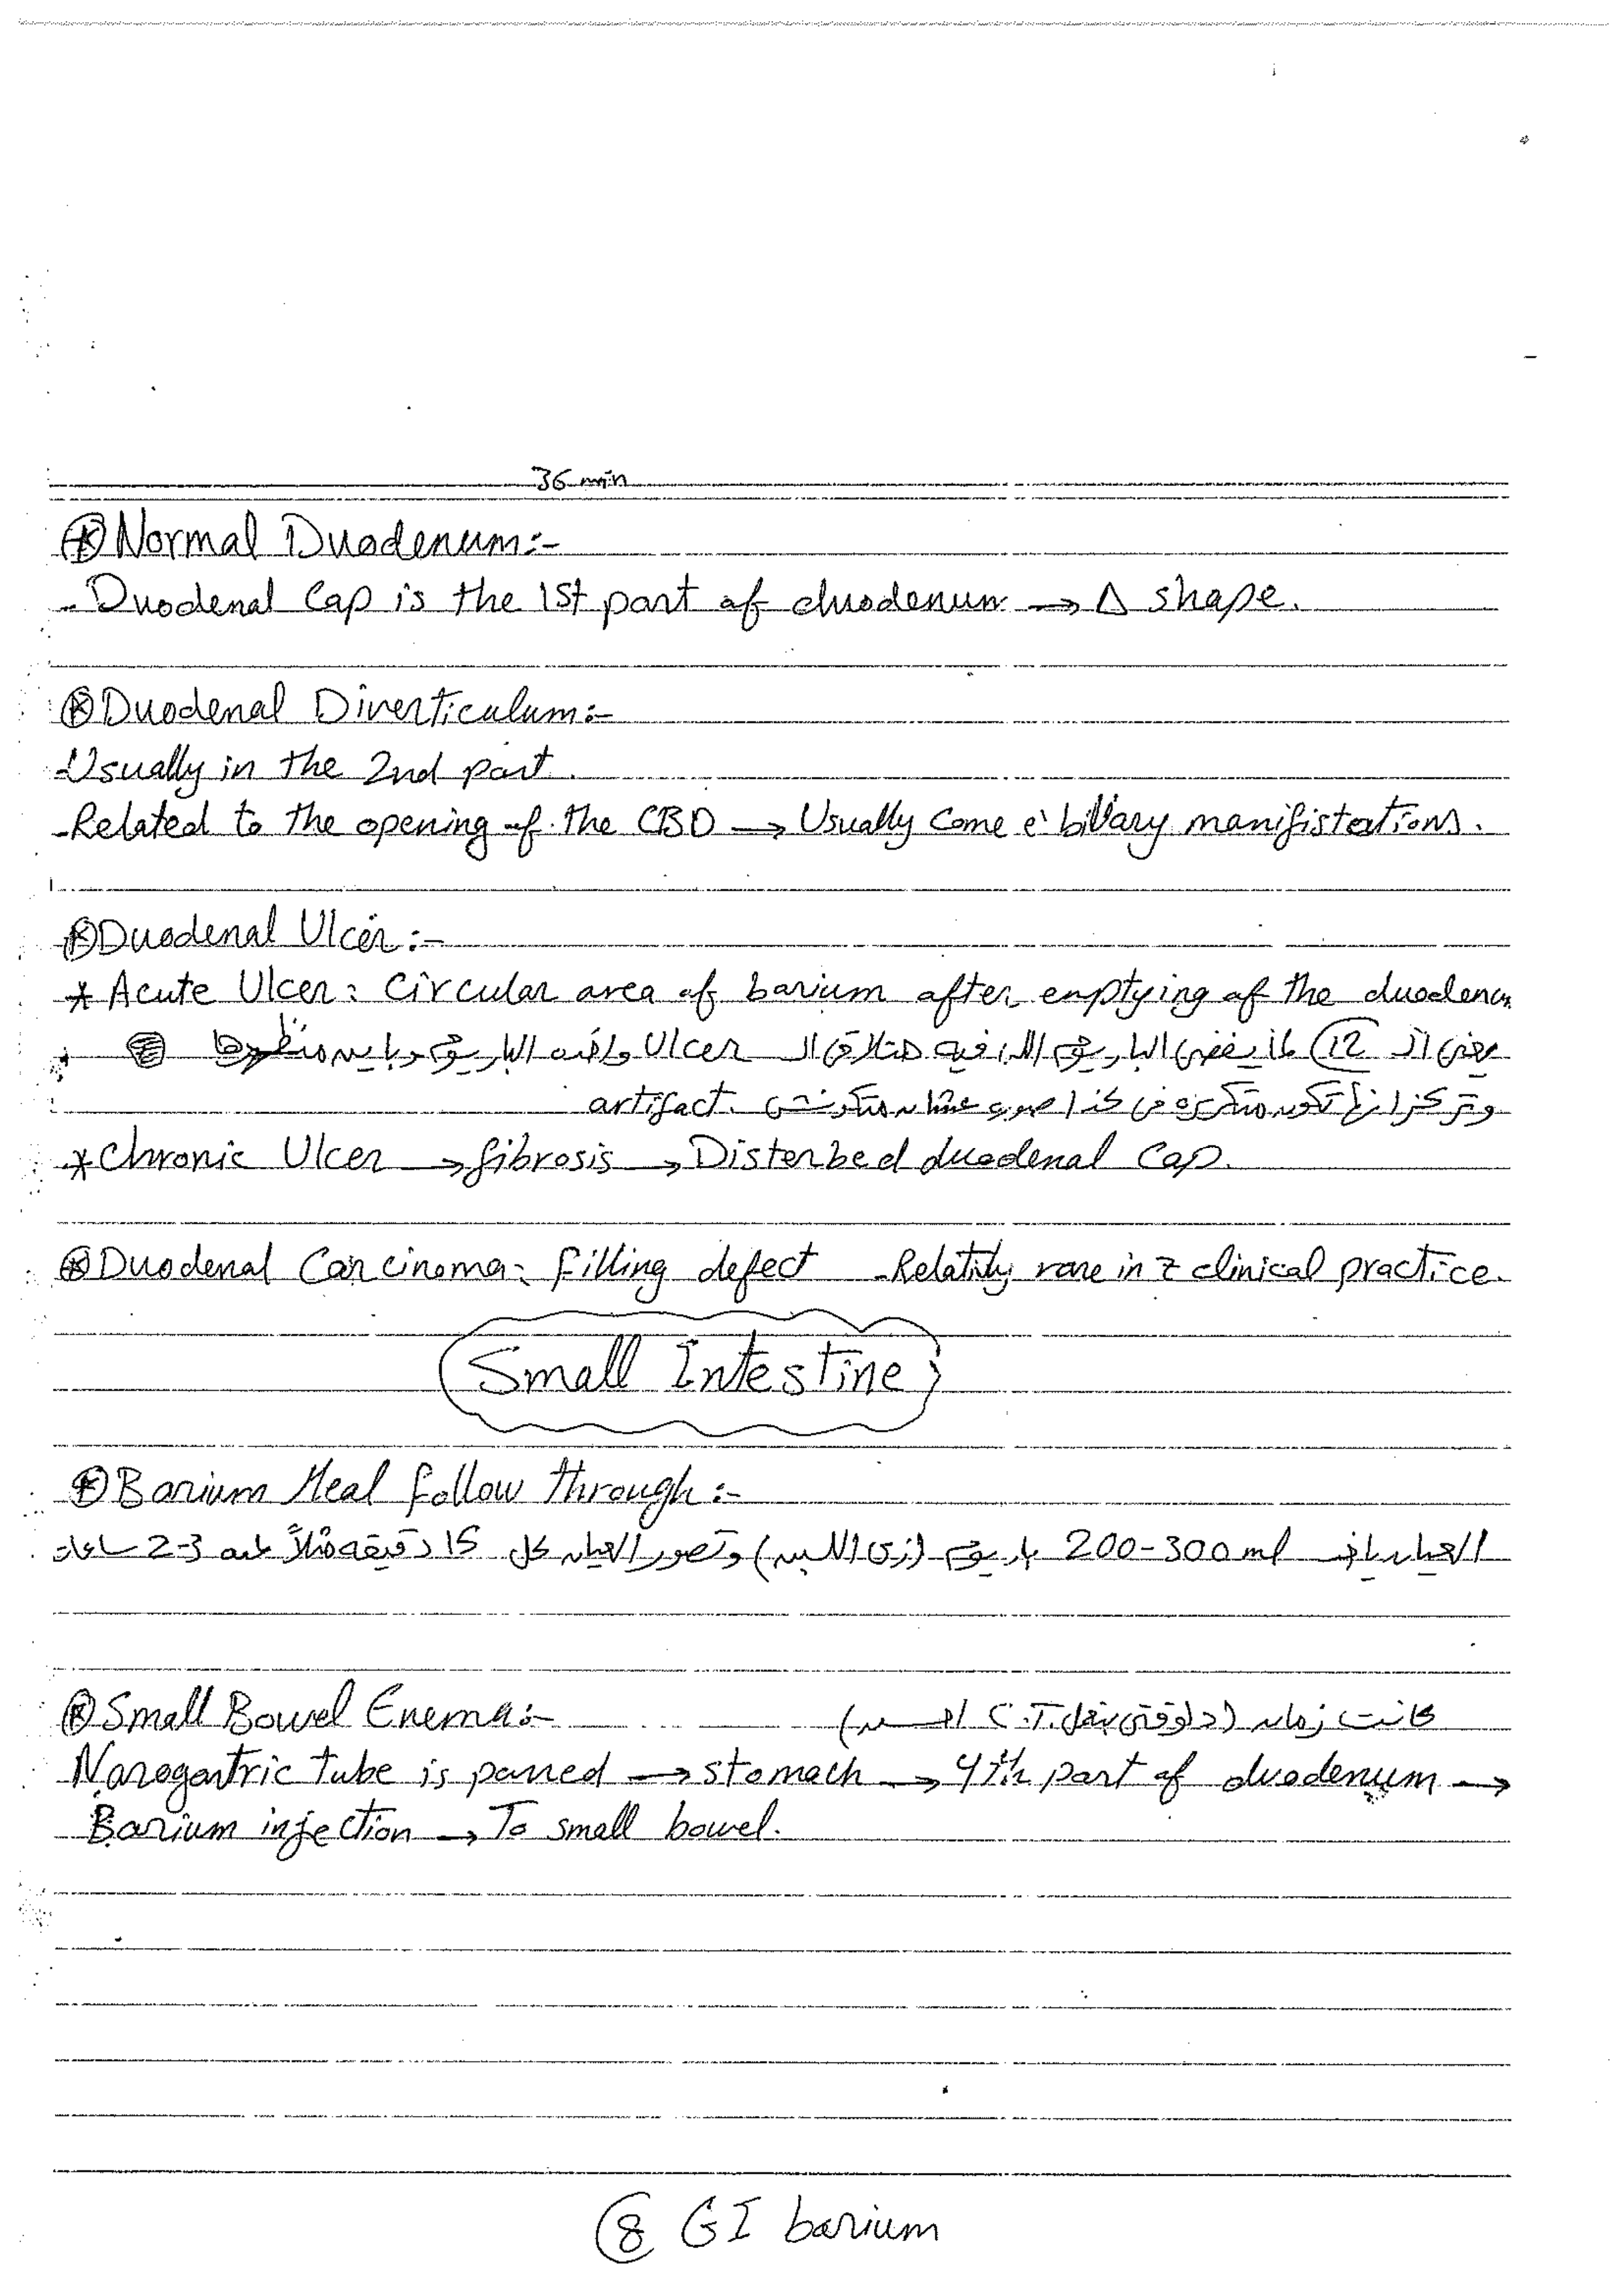 36 min
⊛ Normal Duodenum:-
- Duodenal Cap is the 1st part of duodenum → Δ shape.
⊛ Duodenal Diverticulum:-
- Usually in the 2nd part.
- Related to the opening of the CBD → Usually come c̄ billary manifistations.
⊛ Duodenal Ulcer:-
* Acute Ulcer: Circular area of barium after emptying of the duodenum
يعني الـ 12 لما يفضى الباريوم اللي فيه هتلاقي الـ Ulcer واخده الباريوم وباين منظرها
وتركز انها تكون متكررة في كذا صورة عشان متكونش artifact.
* Chronic Ulcer → fibrosis → Disterbed duodenal Cap.
⊛ Duodenal Carcinoma: filling defect - Relativly rare in z clinical practice.
Small Intestine
⊛ Barium Meal follow through:-
العيان ياخد 200-300 ml باريوم (زي اللبن) وتصور العيان كل 15 دقيقه مثلاً لمده 2-3 ساعات
⊛ Small Bowel Enema:- كانت زمان (دلوقتي بنعمل C.T. احسن)
Nasogastric tube is passed → stomach → 4th part of duodenum →
Barium injection → To small bowel.
8 GI barium